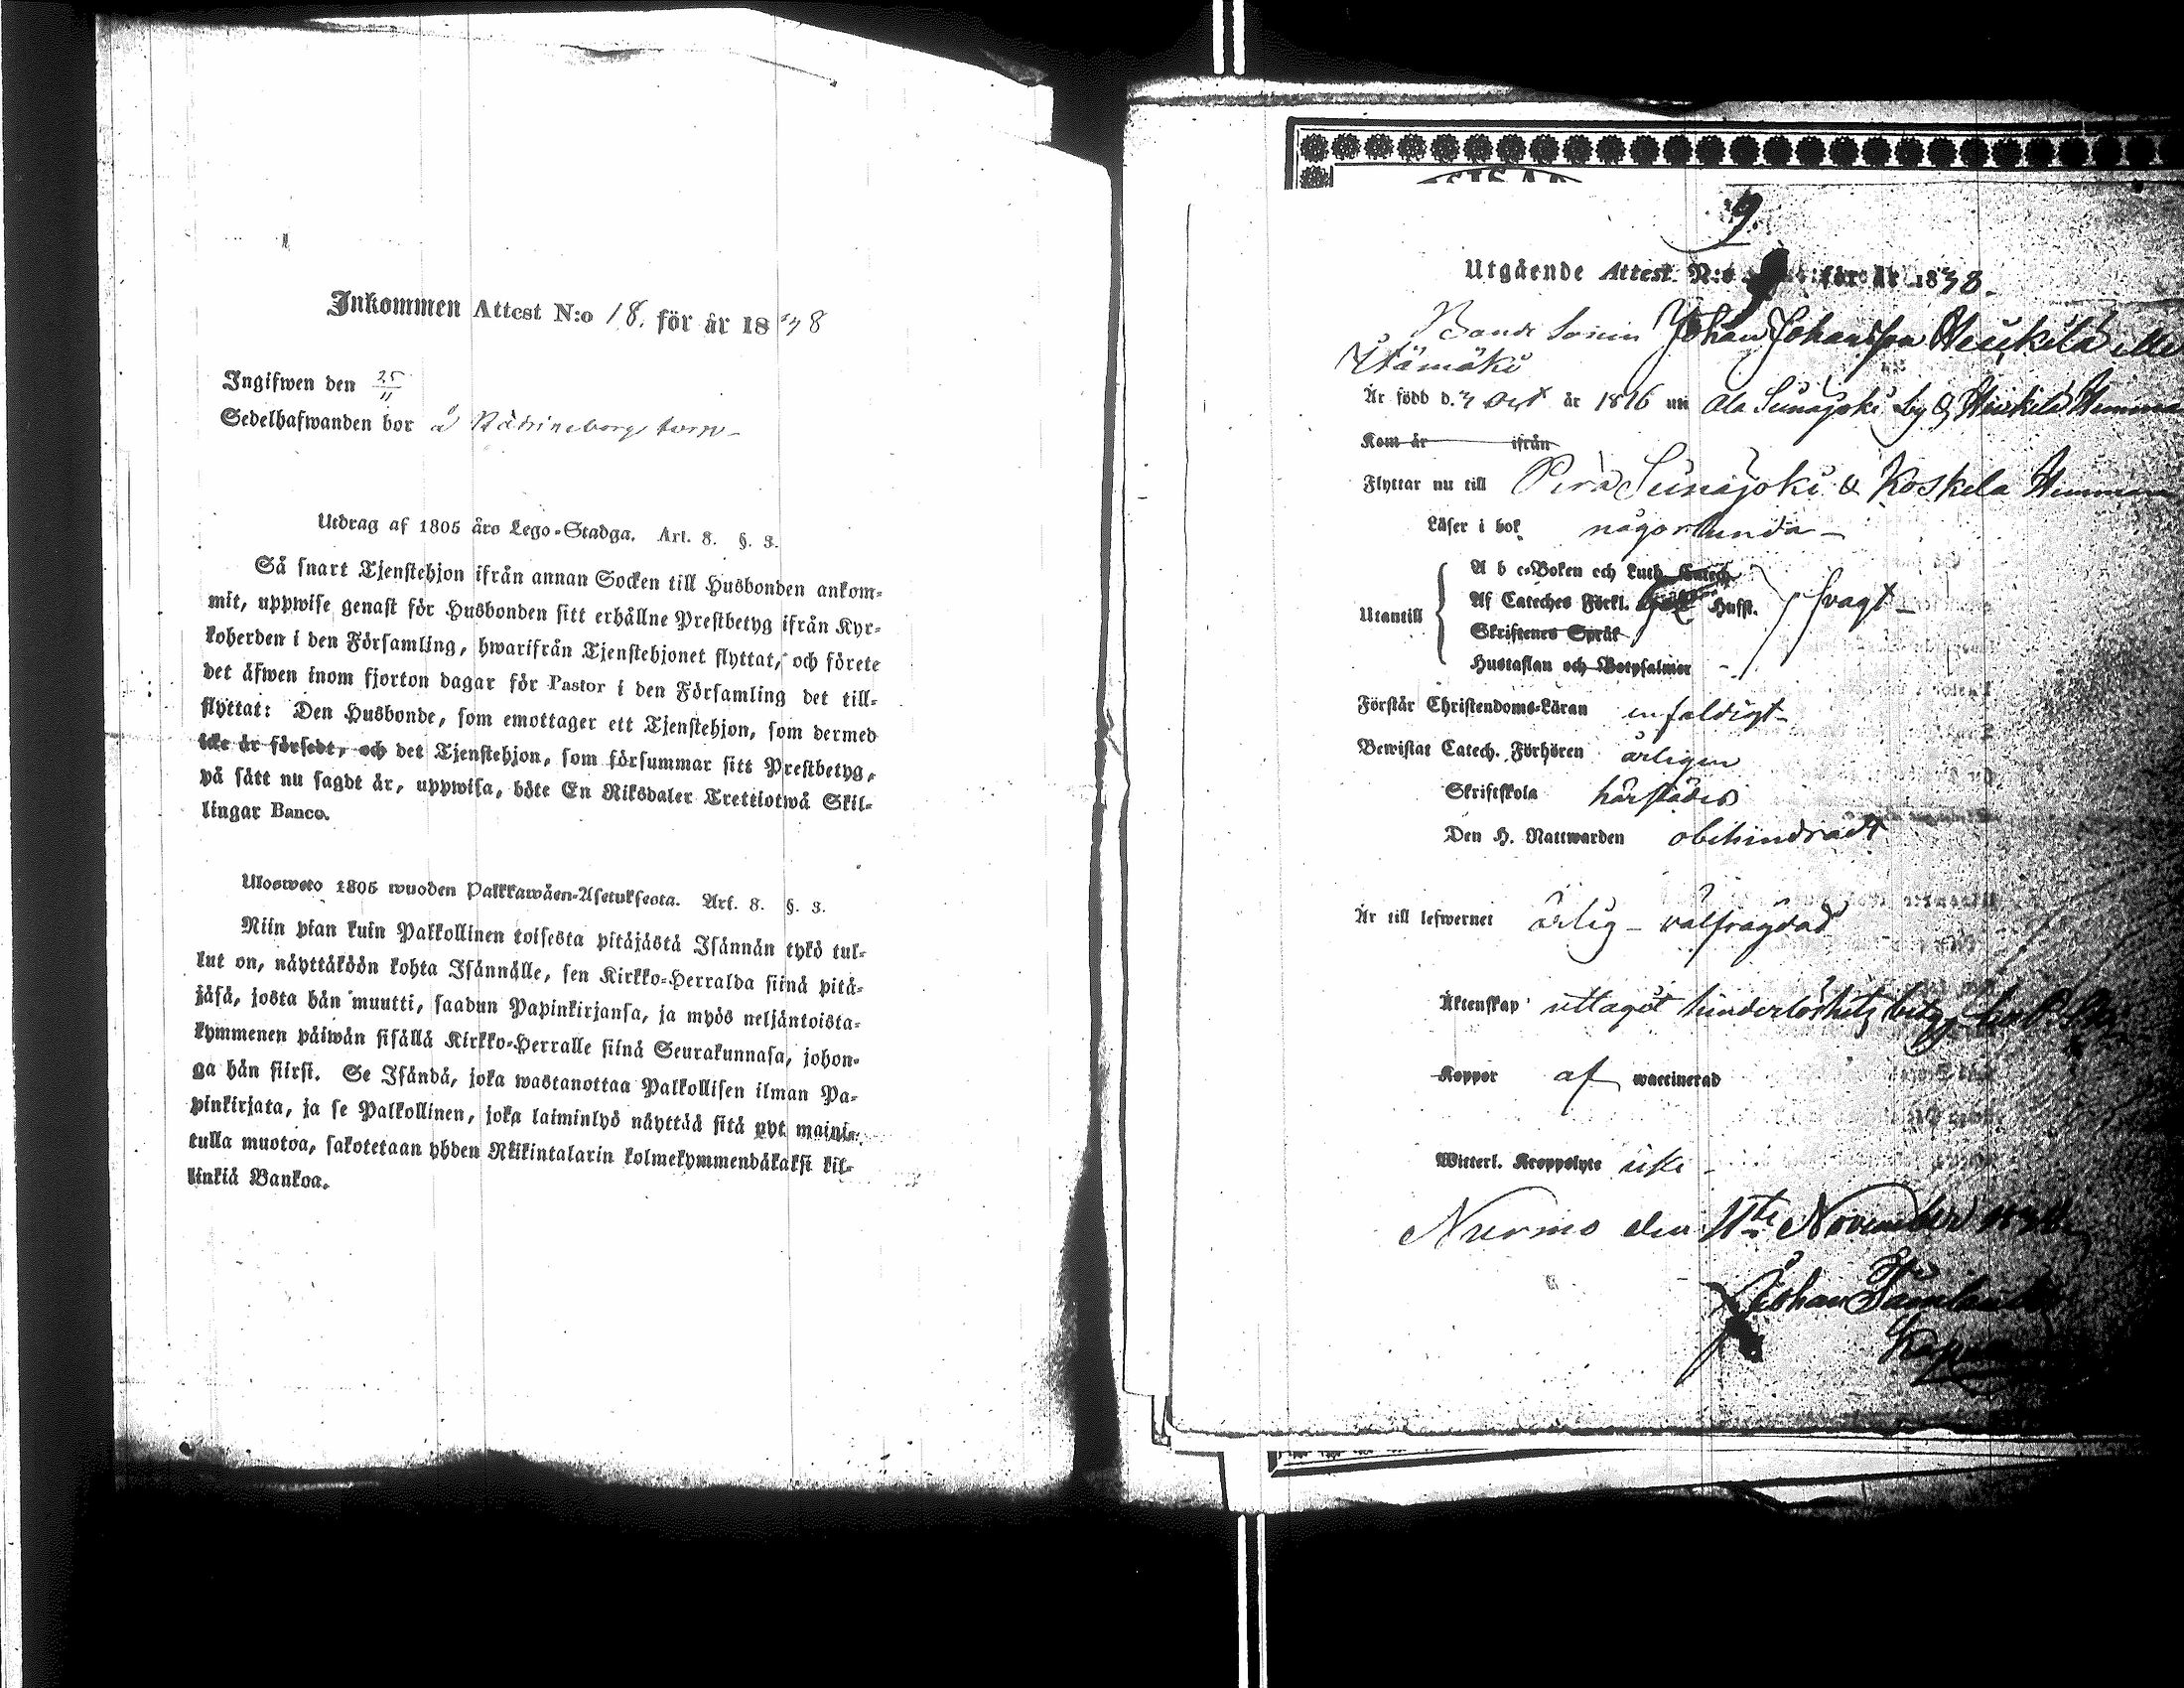 Inkommen Attest N:o 18. för år 1838
Ingifwen den 25/11
Sedelhafwanden bor å torp
Utdrag af 1805 års Lego-Stadga. Art. 8. §. 3.
Så snart Tjenstehjon ifrån annan Socken till Husbonden ankom-
mit, uppwise genast för Husbonden sitt erhållne Prestbetyg ifrån Kyr-
koherden i den Församling, hwarifrån Tjenstehjonet flyttat, och förete
det äfwen inom fjorton dagar för Pastor i den Församling det till-
flyttat: Den Husbonde, som emottager ett Tjenstehjon, som dermed
icke är försedt, och det Tjenstehjon, som försummar sitt Prestbetyg,
på sätt nu sagdt är, uppwisa, böte En Riksdaler Trettiotwå Skil-
lingar Banco.
Ulosweto 1805 wuoden Palkkawäen-Asetuksesta. Art. 8. §. 3.
Niin pian kuin Palkollinen toisesta pitäjästä Isännän tykö tul-
kut on, näyttäköön kohta Isännälle, sen Kirkko-Herralda siinä pitä-
jäsä, josta hän muutti, saadun Papinkirjansa, ja myös neljäntoista-
kymmenen päiwän sisällä Kirkko-Herralle siinä Seurakunnasa, johon-
ga hän siirsi. Se Isändä, joka wastanottaa Palkollisen ilman Pa-
pinkirjata, ja se Palkollinen, joka laiminlyö näyttää sitä nyt mainit-
tulla muotoa, sakotetaan yhden Riikintalarin kolmekymmendäkaksi kil-
linkiä Bankoa.
9.
Utgående Attest N:o för år 1838.
Bonde Sonen Johan Johansson Heikkilä eller
Ytämäki
Är född d. 3 Oct år 1816 uti Ala Seinäjoki by & Heikkilä Hemman
Kom år ifrån
Flyttar nu till Perä Seinäjoki & Koskela Hemman
Läser i bok någorlunda
Utantill
A b c-Boken och Luth. Catech.
Af Cateches Förkl. Husst.
Skriftenes Språk
Hustaflan och Botpsalmer
svagt
Förstår Christendoms-Läran enfaldigt
Bewistat Catech. Förhören årligen
Skriftskola härstädes
Den H. Nattwarden obehindradt
Är till lefwernet ärlig – välfrägdad
Äktenskap uttaget hinderlöshets betyg
Koppor af waccinerad
Witterl. Kroppslyte icke
Nurmo den 11te November 1838
Johan
Kapellan